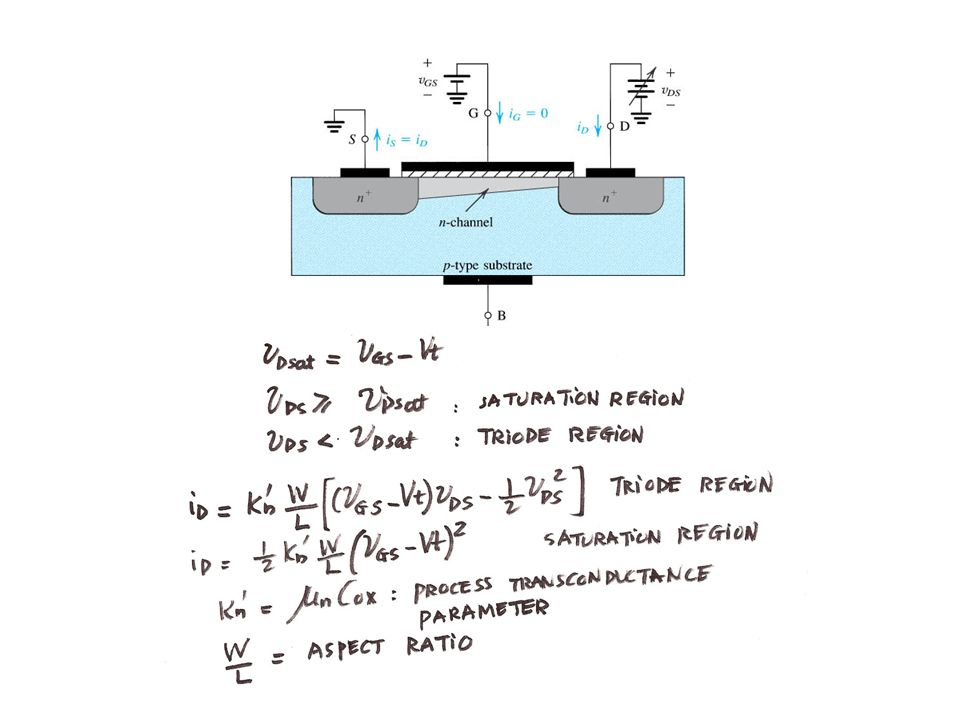 +
vGS
−
G
iG = 0
+
vDS
−
S
iS = iD
iD
D
n+
n+
n-channel
p-type substrate
B
vDsat = vGS – Vt
vDS ⩾ vDsat : SATURATION REGION
vDS < vDsat : TRIODE REGION
iD = Kn' W/L [(vGS – Vt) vDS – 1/2 vDS²] TRIODE REGION
iD = 1/2 Kn' W/L (vGS – Vt)² SATURATION REGION
Kn' = μn Cox : PROCESS TRANSCONDUCTANCE
PARAMETER
W/L = ASPECT RATIO